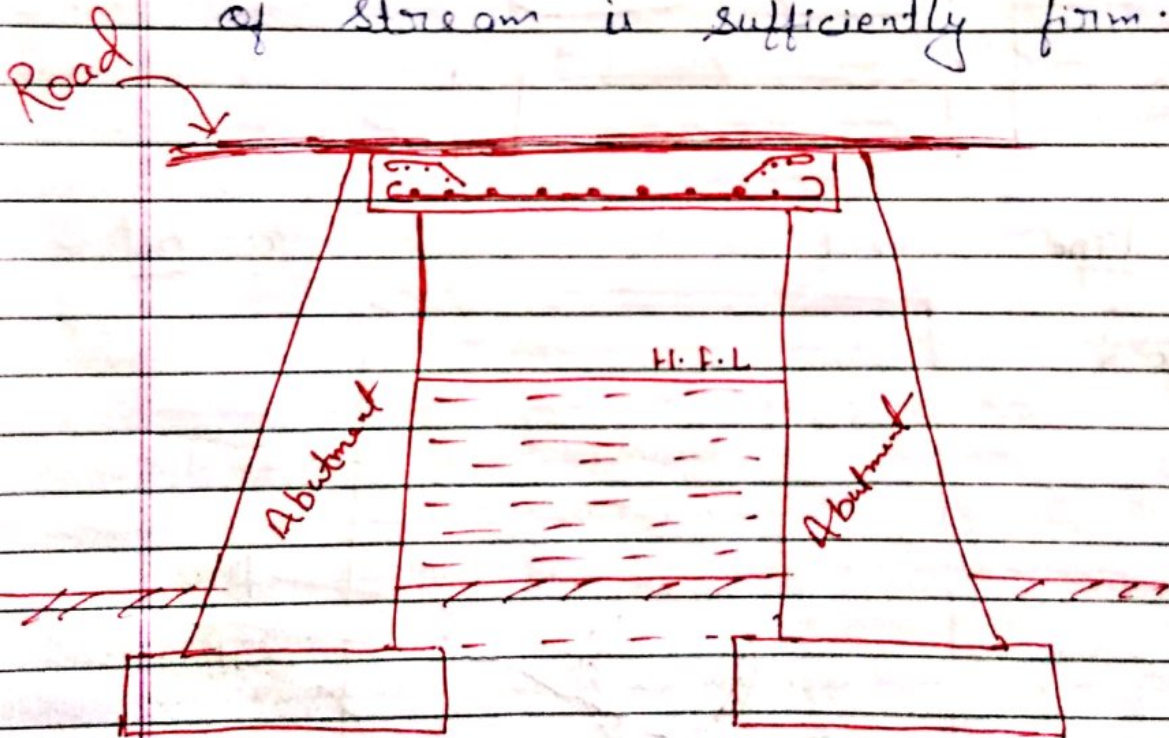 of stream is sufficiently firm.
Road
H.F.L
Abutment
Abutment